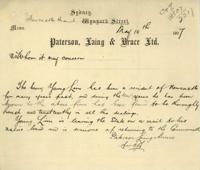 Sydney
Wynyard Street,
Memo.
May 10th 1907
Paterson, Laing & Bruce Ltd.
To whom it may concern
The bearer Young Low has been a resident of Newcastle
for many years past, and during the time years he has been
known to the above firm has been found to be thoroughly
honest and trustworthy in all his dealings.
Young Low is leaving the State on a visit to his
native land and is desirous of returning to the Commonwealth
Paterson Laing & Bruce